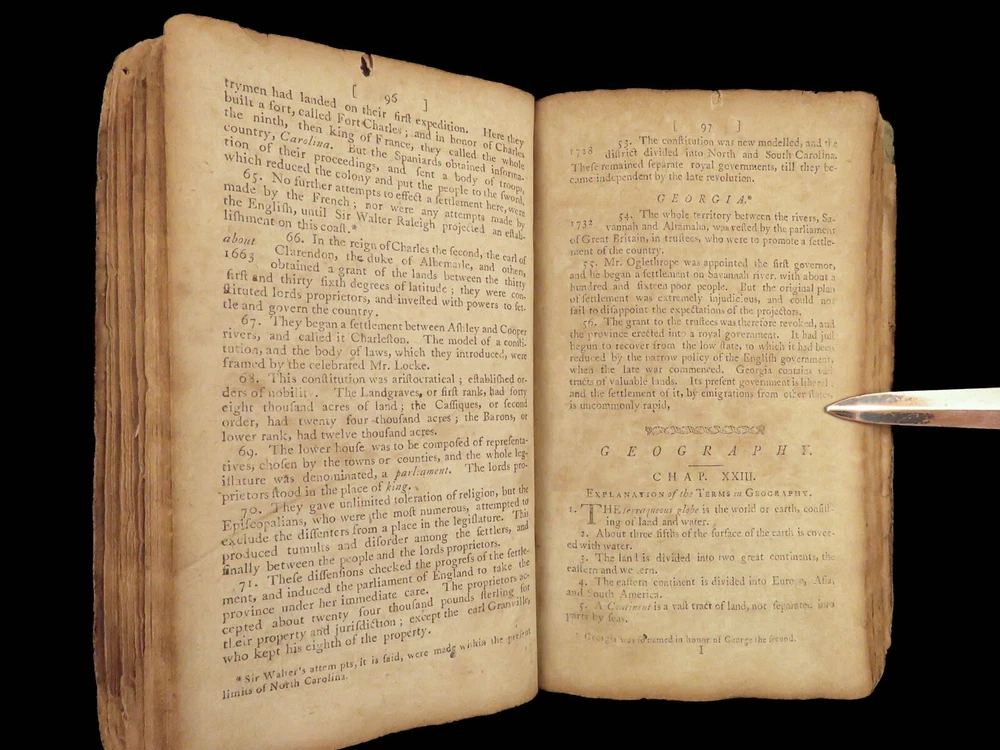 [ 96 ]
trymen had landed on their firſt expedition. Here they
built a fort, called Fort Charles; and in honor of Charles
the ninth, then king of France, they called the whole
country, Carolina. But the Spaniards obtained informa-
tion of their proceedings, and ſent a body of troops,
which reduced the colony and put the people to the ſword.
65. No further attempts to effect a ſettlement here, were
made by the French; nor were any attempts made by
the Engliſh, until Sir Walter Raleigh projected an eſtab-
liſhment on this coaſt.*
about 66. In the reign of Charles the ſecond, the earl of
1663 Clarendon, the duke of Albemarle, and others,
obtained a grant of the lands between the thirty
firſt and thirty ſixth degrees of latitude; they were con-
ſtituted lords proprietors, and inveſted with powers to ſet-
tle and govern the country.
67. They began a ſettlement between Aſhley and Cooper
rivers, and called it Charleſton. The model of a conſti-
tution, and the body of laws, which they introduced, were
framed by the celebrated Mr. Locke.
68. This conſtitution was ariſtocratical; eſtabliſhed or-
ders of nobility. The Landgraves, or firſt rank, had forty
eight thouſand acres of land; the Caſſiques, or ſecond
order, had twenty four thouſand acres; the Barons, or
lower rank, had twelve thouſand acres.
69. The lower houſe was to be compoſed of repreſenta-
tives, choſen by the towns or counties, and the whole leg-
iſlature was denominated, a parliament. The lords pro-
prietors ſtood in the place of king.
70. They gave unlimited toleration of religion, but the
Epiſcopalians, who were the moſt numerous, attempted to
exclude the diſſenters from a place in the legiſlature. This
produced tumults and diſorder among the ſettlers, and
finally between the people and the lords proprietors.
71. Theſe diſſenſions checked the progreſs of the ſettle-
ment, and induced the parliament of England to take the
province under her immediate care. The proprietors ac-
cepted about twenty four thouſand pounds ſterling for
their property and juriſdiction; except the earl Granville,
who kept his eighth of the property.
*Sir Walter's attempts, it is ſaid, were made within the preſent
limits of North Carolina.
[ 97 ]
53. The conſtitution was new modelled, and the
1728 diſtrict divided into North and South Carolina.
Theſe remained ſeparate royal governments, till they be-
came independent by the late revolution.
GEORGIA.*
54. The whole territory between the rivers, Sa-
1732 vannah and Altamaha, was veſted by the parliament
of Great Britain, in truſtees, who were to promote a ſettle-
ment of the country.
55. Mr. Oglethrope was appointed the firſt governor,
and he began a ſettlement on Savannah river, with about a
hundred and ſixteen poor people. But the original plan
of ſettlement was extremely injudicious, and could not
fail to diſappoint the expectations of the projectors.
56. The grant to the truſtees was therefore revoked, and
the province erected into a royal government. It had juſt
begun to recover from the low ſtate, to which it had been
reduced by the narrow policy of the Engliſh government,
when the late war commenced. Georgia contains vaſt
tracts of valuable lands. Its preſent government is liberal;
and the ſettlement of it, by emigrations from other ſtates,
is uncommonly rapid,
GEOGRAPHY.
CHAP. XXIII.
EXPLANATION of the TERMS in GEOGRAPHY.
1. THE terraqueous globe is the world or earth, conſiſt-
ing of land and water.
2. About three fifths of the ſurface of the earth is cover-
ed with water.
3. The land is divided into two great continents, the
eaſtern and weſtern.
4. The eaſtern continent is divided into Europe, Aſia,
and South America.
5. A Continent is a vaſt tract of land, not ſeparated into
parts by ſeas.
* Georgia was ſo named in honor of George the ſecond.
I